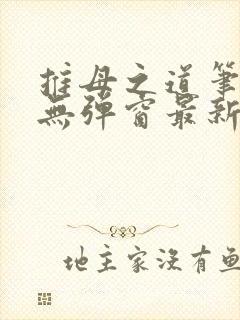 推母之道筆
無彈窗最新
地主家没有鱼